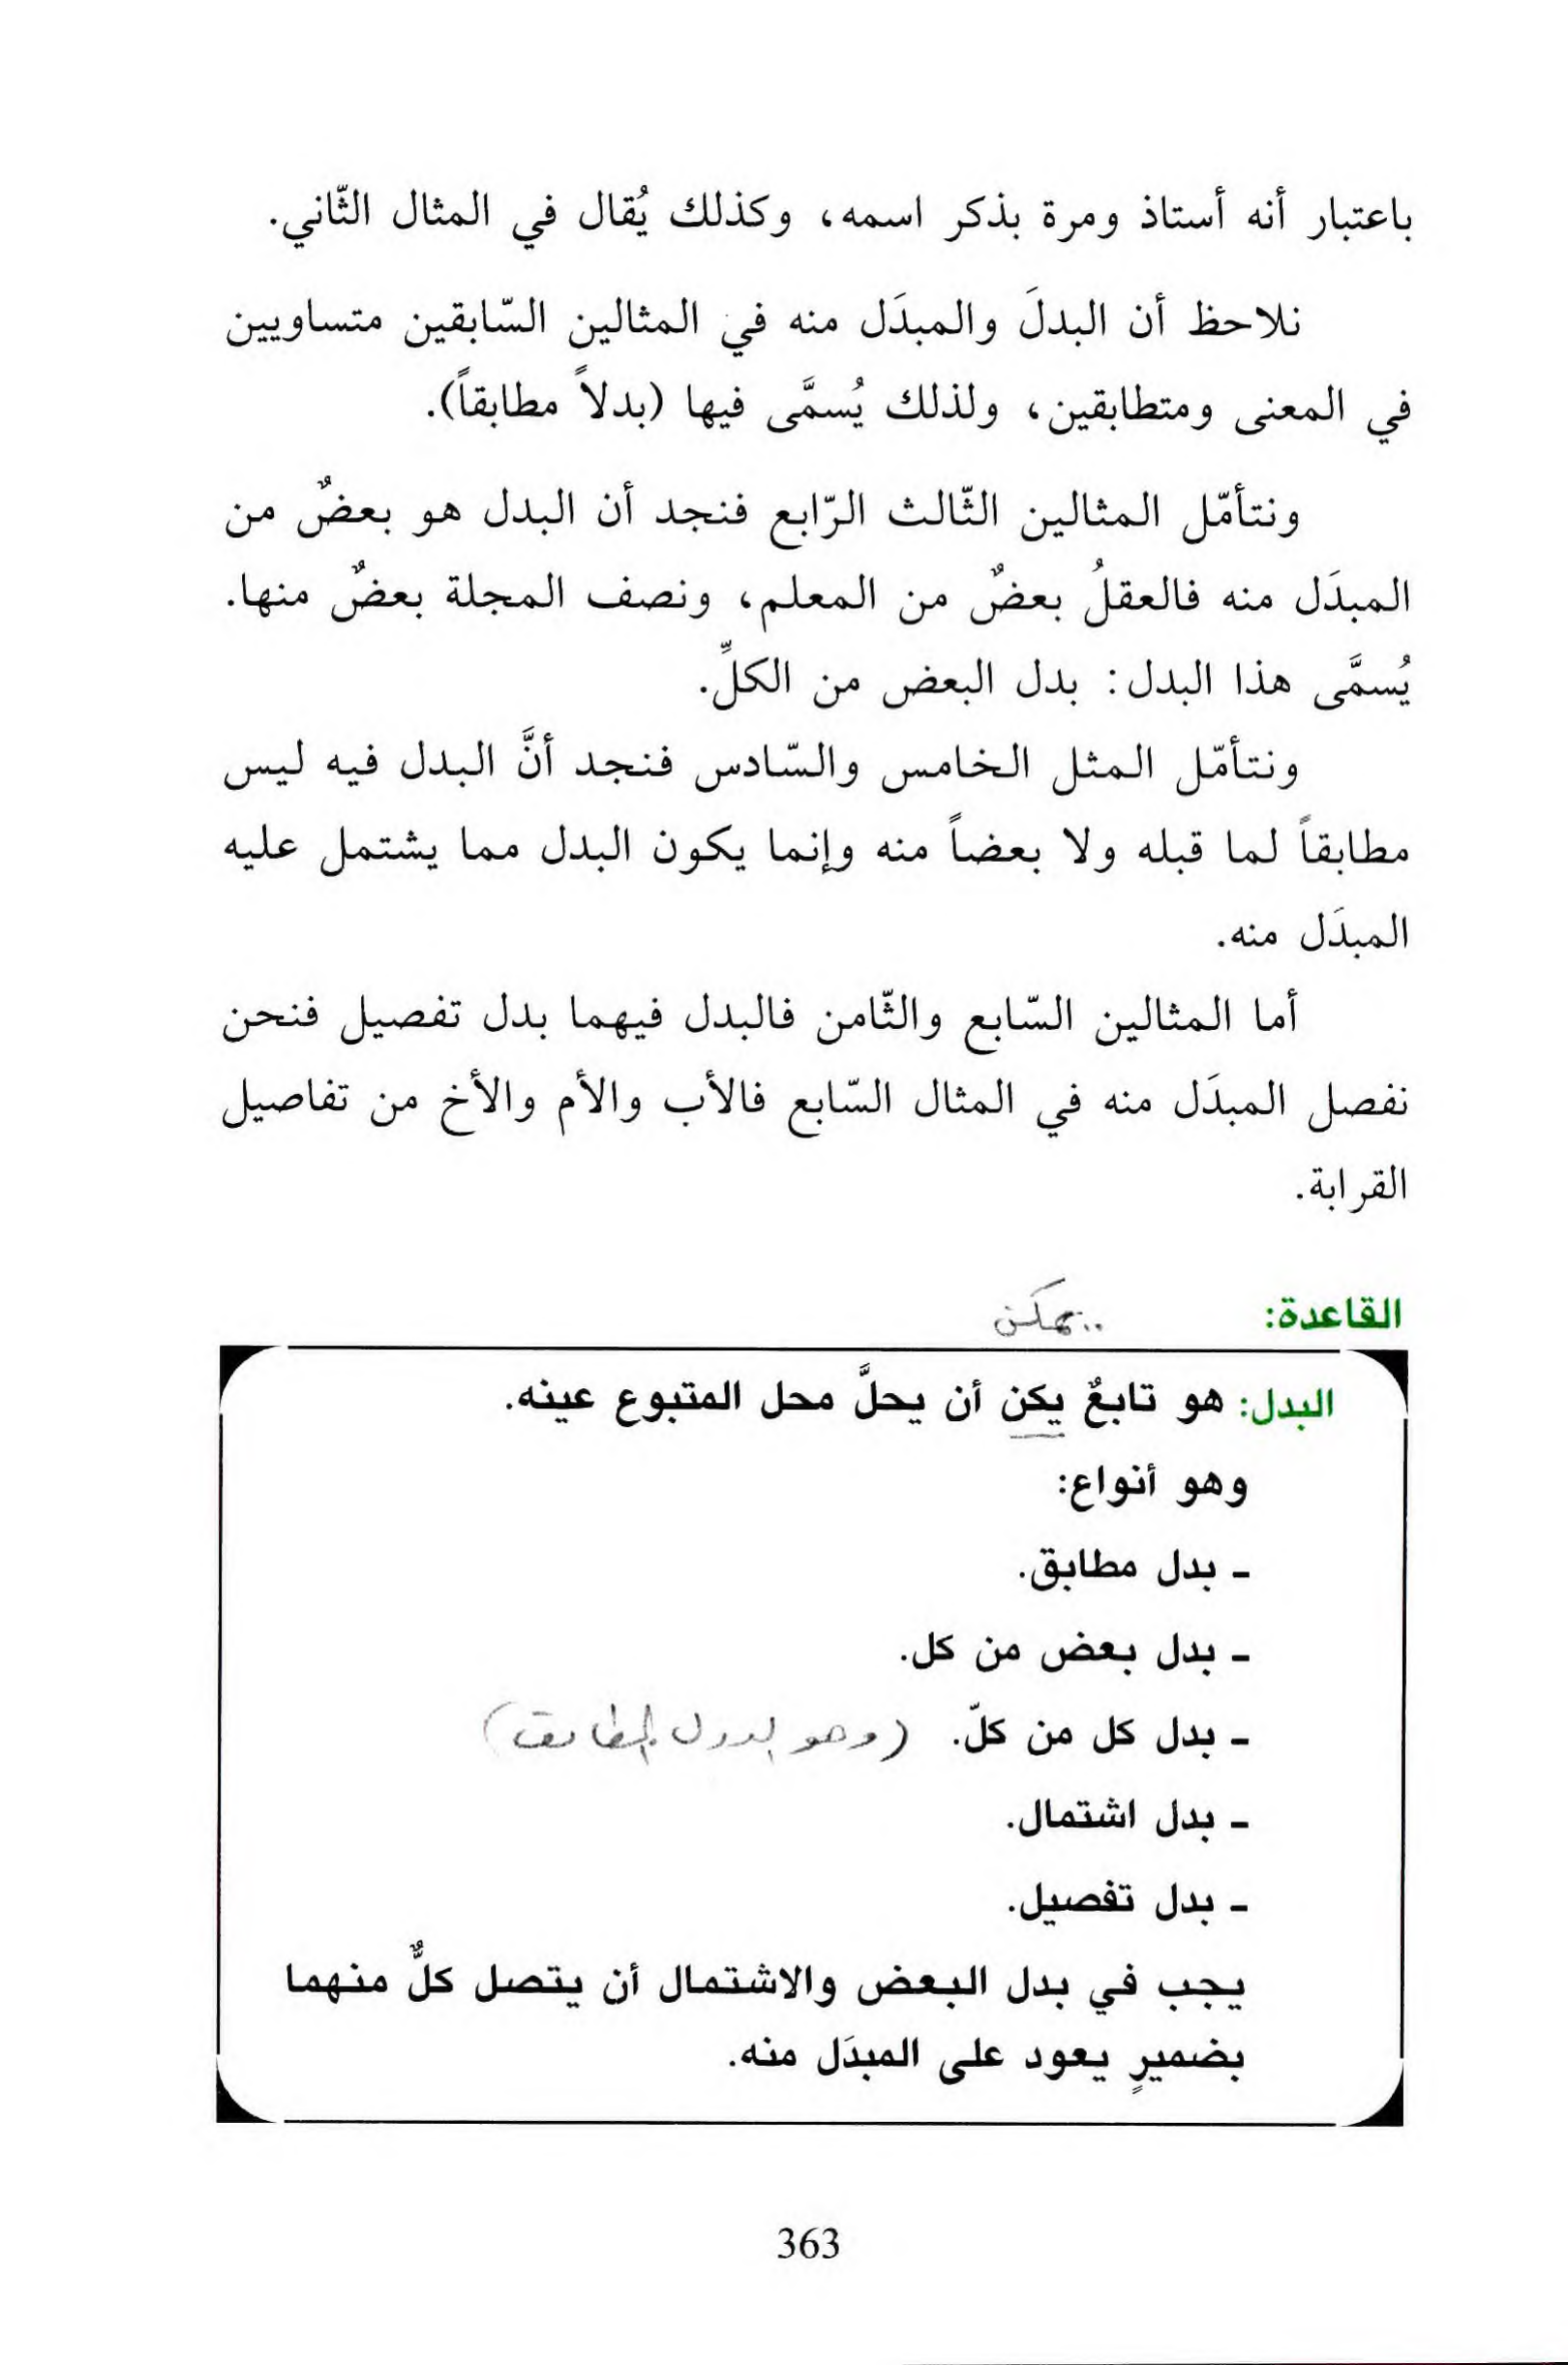 باعتبار أنه أستاذ ومرة بذكر اسمه، وكذلك يُقال في المثال الثّاني.
نلاحظ أن البدلَ والمبدَل منه في المثالين السّابقين متساويين
في المعنى ومتطابقين، ولذلك يُسمَّى فيها (بدلاً مطابقاً).
ونتأمّل المثالين الثّالث الرّابع فنجد أن البدل هو بعضٌ من
المبدَل منه فالعقلُ بعضٌ من المعلم، ونصف المجلة بعضٌ منها.
يُسمَّى هذا البدل: بدل البعض من الكلِّ.
ونتأمّل المثل الخامس والسّادس فنجد أنَّ البدل فيه ليس
مطابقاً لما قبله ولا بعضاً منه وإنما يكون البدل مما يشتمل عليه
المبدَل منه.
أما المثالين السّابع والثّامن فالبدل فيهما بدل تفصيل فنحن
نفصل المبدَل منه في المثال السّابع فالأب والأم والأخ من تفاصيل
القرابة.
القاعدة: ..يمكن
البدل: هو تابعٌ يكن أن يحلَّ محل المتبوع عينه.
وهو أنواع:
- بدل مطابق.
- بدل بعض من كل.
- بدل كل من كلّ. (وهو البدل المطابق)
- بدل اشتمال.
- بدل تفصيل.
يجب في بدل البعض والاشتمال أن يتصل كلٌّ منهما
بضميرٍ يعود على المبدَل منه.
363